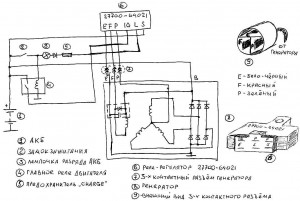 ⑥
27700-64021
E F P IG L S
ОТ
ГЕНЕРАТОРА
⑨
E - БЕЛО-ЧЁРНЫЙ
F - КРАСНЫЙ
P - ЗЕЛЁНЫЙ
E F P
⑦
B
⑧
27700-64021
⑥
① АКБ
② ЗАМОК ЗАЖИГАНИЯ
③ ЛАМПОЧКА РАЗРЯДА АКБ
④ ГЛАВНОЕ РЕЛЕ ДВИГАТЕЛЯ
⑤ ПРЕДОХРАНИТЕЛЬ "CHARGE"
⑥ РЕЛЕ-РЕГУЛЯТОР 27700-64021
⑦ 3-Х КОНТАКТНЫЙ РАЗЪЁМ ГЕНЕРАТОРА
⑧ ГЕНЕРАТОР
⑨ ВНЕШНИЙ ВИД 3-Х КОНТАКТНОГО РАЗЪЁМА